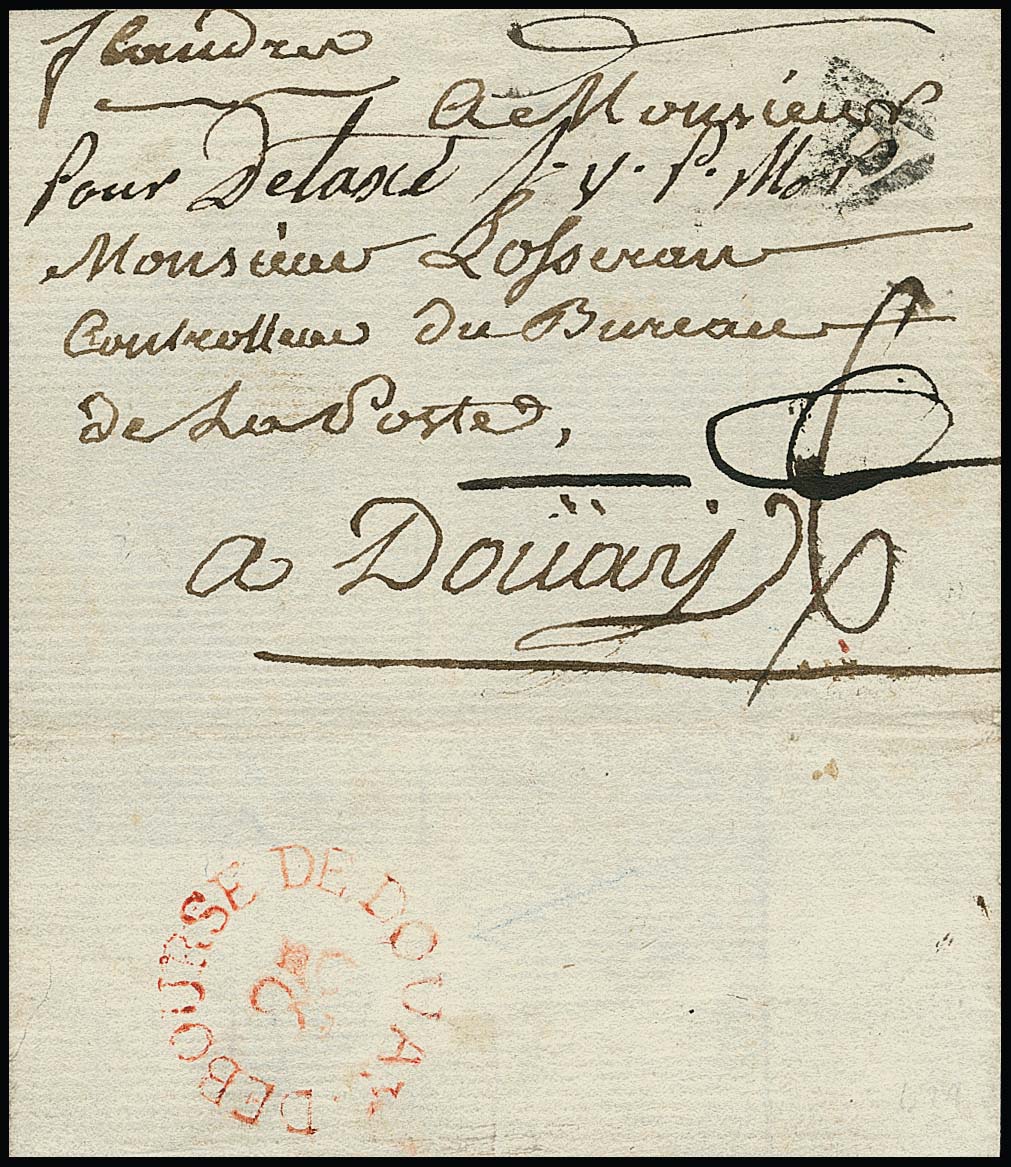 flandres
A Monsieur
pour Detaxé s. v. p. Mr
Monsieur Losseran
Controlleur du Bureau
de La Poste,
a Doüay
DEBOURSE DE DOUAY